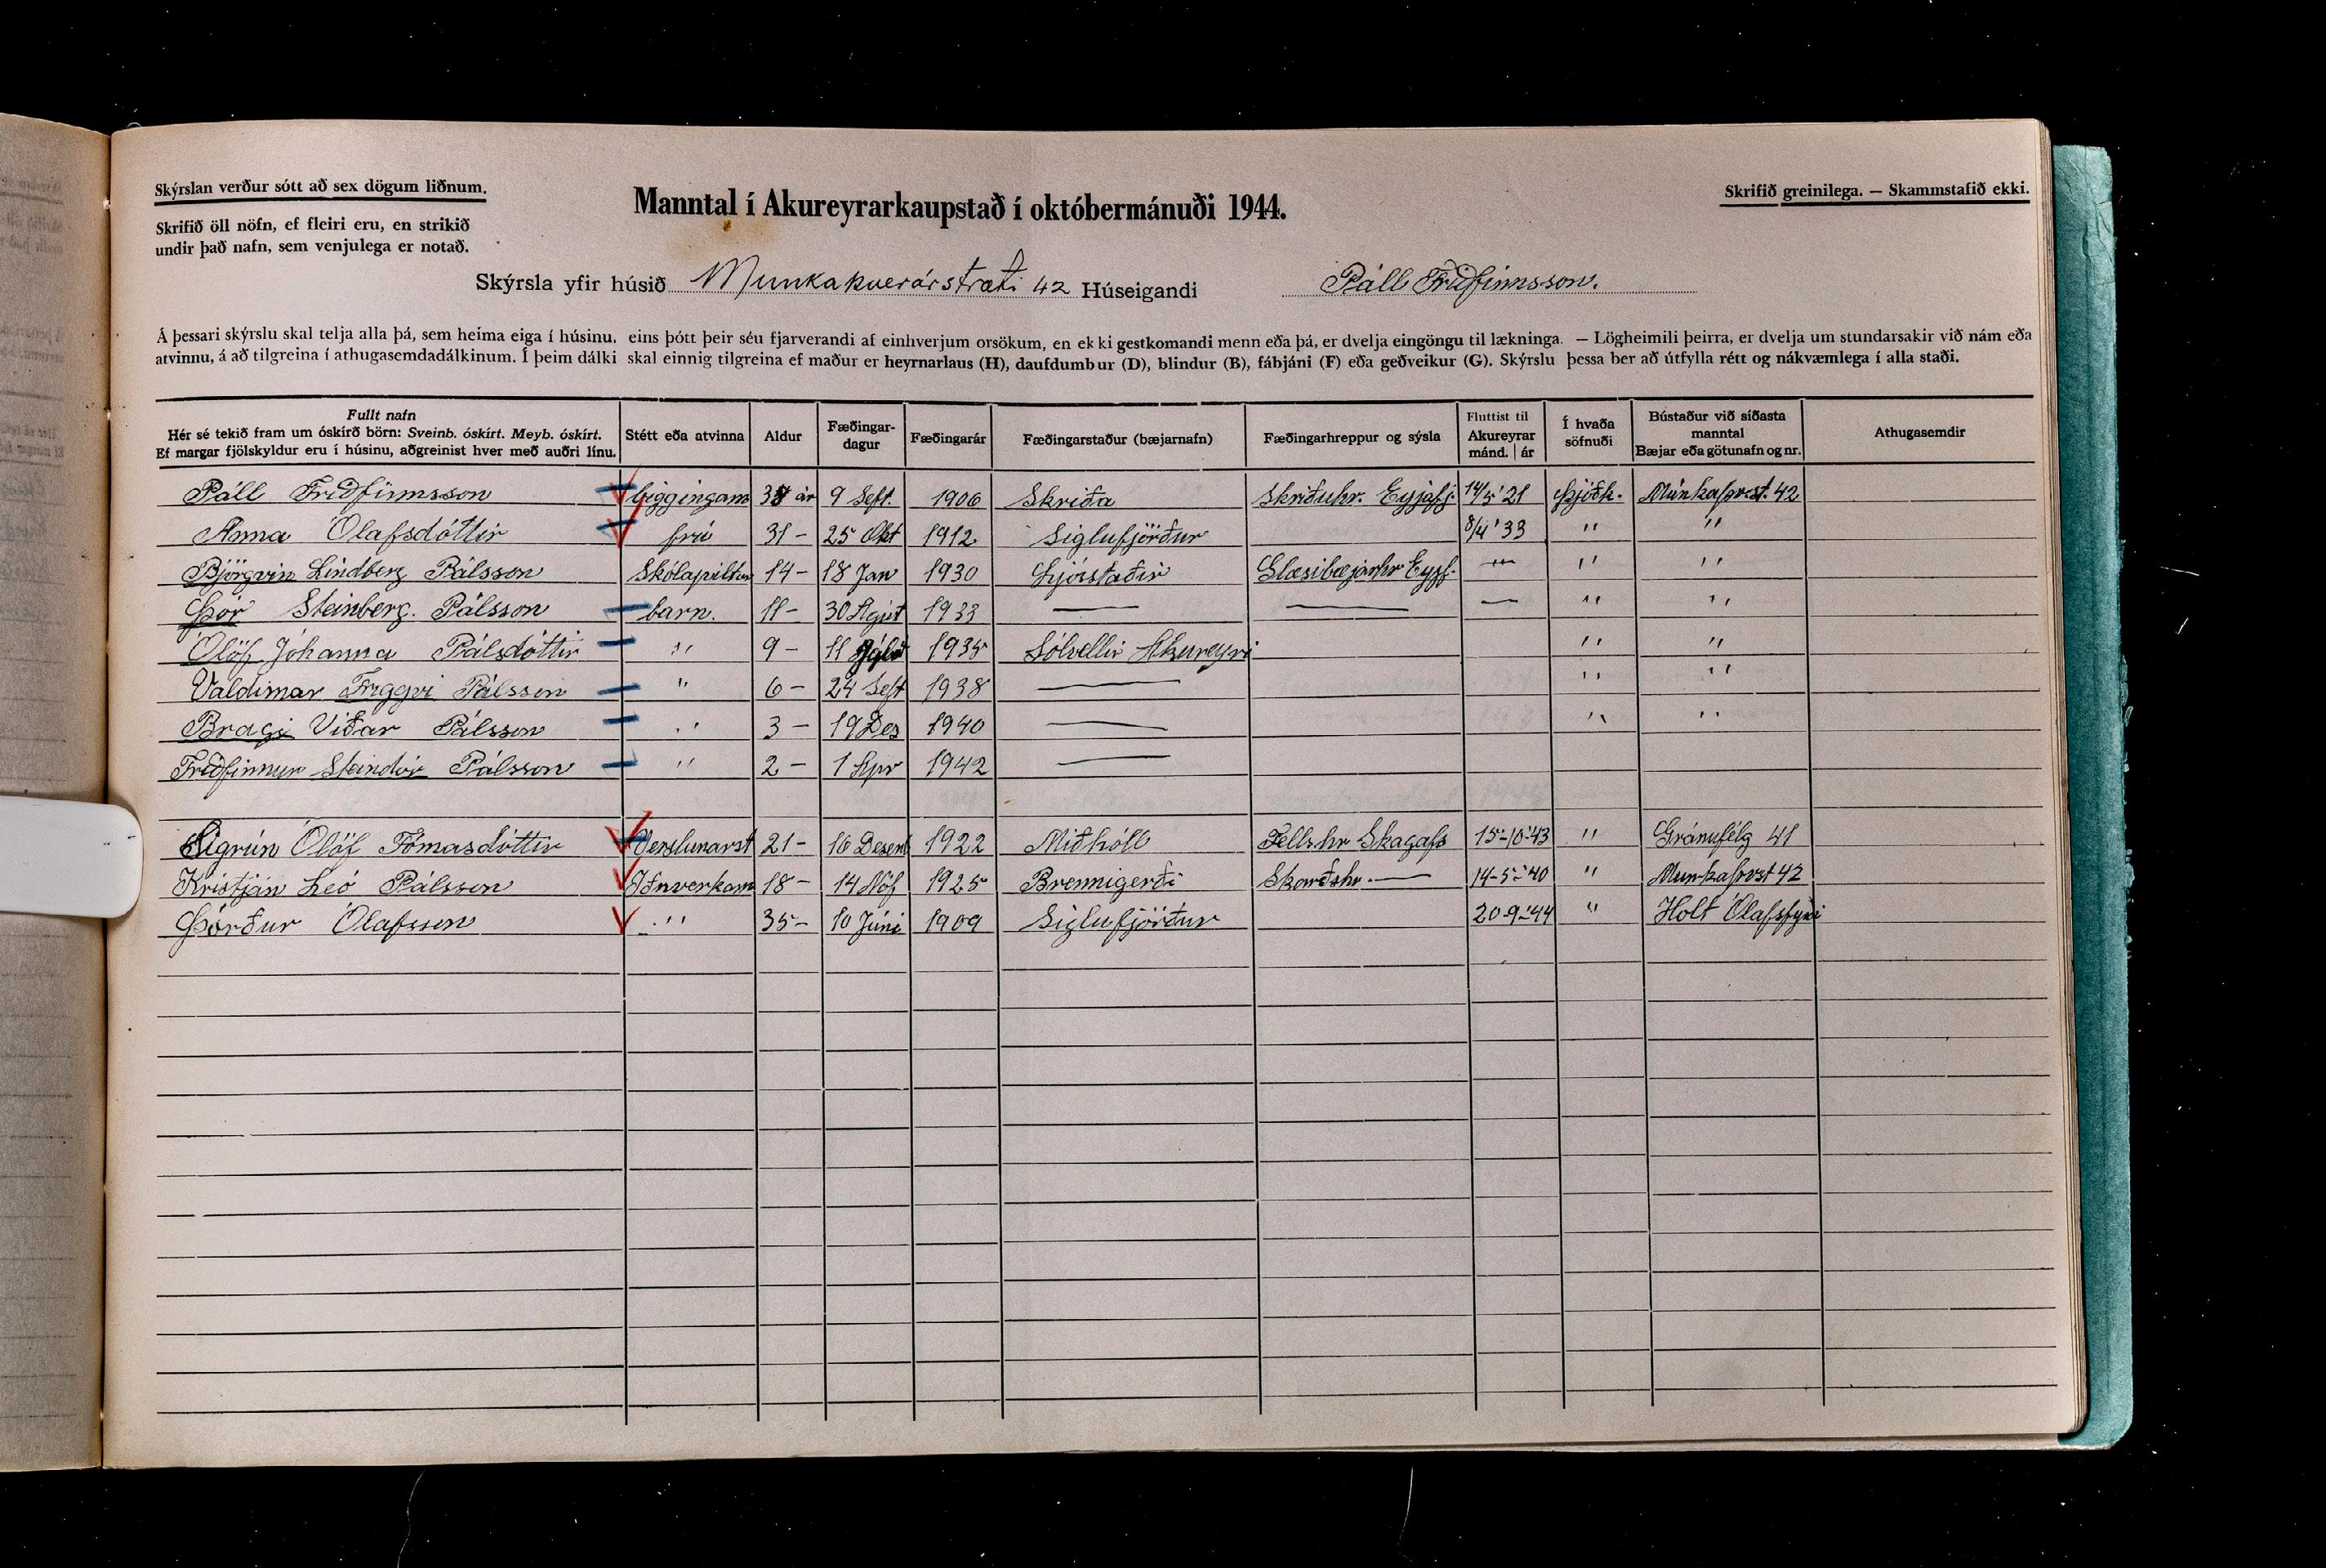 Skýrslan verður sótt að sex dögum liðnum.
Skrifið öll nöfn, ef fleiri eru, en strikið
undir það nafn, sem venjulega er notað.
Manntal í Akureyrarkaupstað í októbermánuði 1944.
Skrifið greinilega. — Skammstafið ekki.
Skýrsla yfir húsið Munkaþverárstræti 42 Húseigandi Páll Friðfinnsson.
Á þessari skýrslu skal telja alla þá, sem heima eiga í húsinu, eins þótt þeir séu fjarverandi af einhverjum orsökum, en ekki gestkomandi menn eða þá, er dvelja eingöngu til lækninga. — Lögheimili þeirra, er dvelja um stundarsakir við nám eða
atvinnu, á að tilgreina í athugasemdadálkinum. Í þeim dálki skal einnig tilgreina ef maður er heyrnarlaus (H), daufdumbur (D), blindur (B), fábjáni (F) eða geðveikur (G). Skýrslu þessa ber að útfylla rétt og nákvæmlega í alla staði.
Fullt nafn
Hér sé tekið fram um óskírð börn: Sveinb. óskírt. Meyb. óskírt.
Ef margar fjölskyldur eru í húsinu, aðgreinist hver með auðri línu.
Stétt eða atvinna
Aldur
Fæðingar-
dagur
Fæðingarár
Fæðingarstaður (bæjarnafn)
Fæðingarhreppur og sýsla
Fluttist til
Akureyrar
mánd. | ár
Í hvaða
söfnuði
Bústaður við síðasta
manntal
Bæjar eða götunafn og nr.
Athugasemdir
Páll Friðfinnsson byggingam 38 ár 9 Sept. 1906 Skriða Skriðuhr. Eyjafj. 14/5 '21 Þjóðk. Munkaþvst. 42
Anna Ólafsdóttir frú 31 - 25 Okt 1912 Siglufjörður 8/4 '33 " "
Björgvin Lindberg Pálsson Skólapiltur 14 - 18 Jan 1930 Ljósstaðir Glæsibæjarhr Eyjf. — " "
Þór Steinberg. Pálsson barn. 11 - 30 Águst 1933 — — — " "
Ólöf Jóhanna Pálsdóttir " 9 - 11 1935 Sólvellir Akureyri " "
Valdimar Tryggvi Pálsson " 6 - 24 Sept 1938 — " "
Bragi Viðar Pálsson " 3 - 19 Des 1940 — " "
Friðfinnur Steindór Pálsson " 2 - 1 Apr 1942 —
Sigrún Ólöf Tómasdóttir Verslunarst 21 - 16 Desem 1922 Miðhóll Fellshr Skagafj 15-10-'43 " Gránufélg 41
Kristján Leó Pálsson Iðnverkam 18 - 14 Nóf 1925 Brennigerði Skarðshr. — 14-5-'40 " Munkaþvst 42
Þórður Ólafsson " 35 - 10 Júní 1909 Siglufjörður 20-9-'44 " Holt Ólafsfyrði